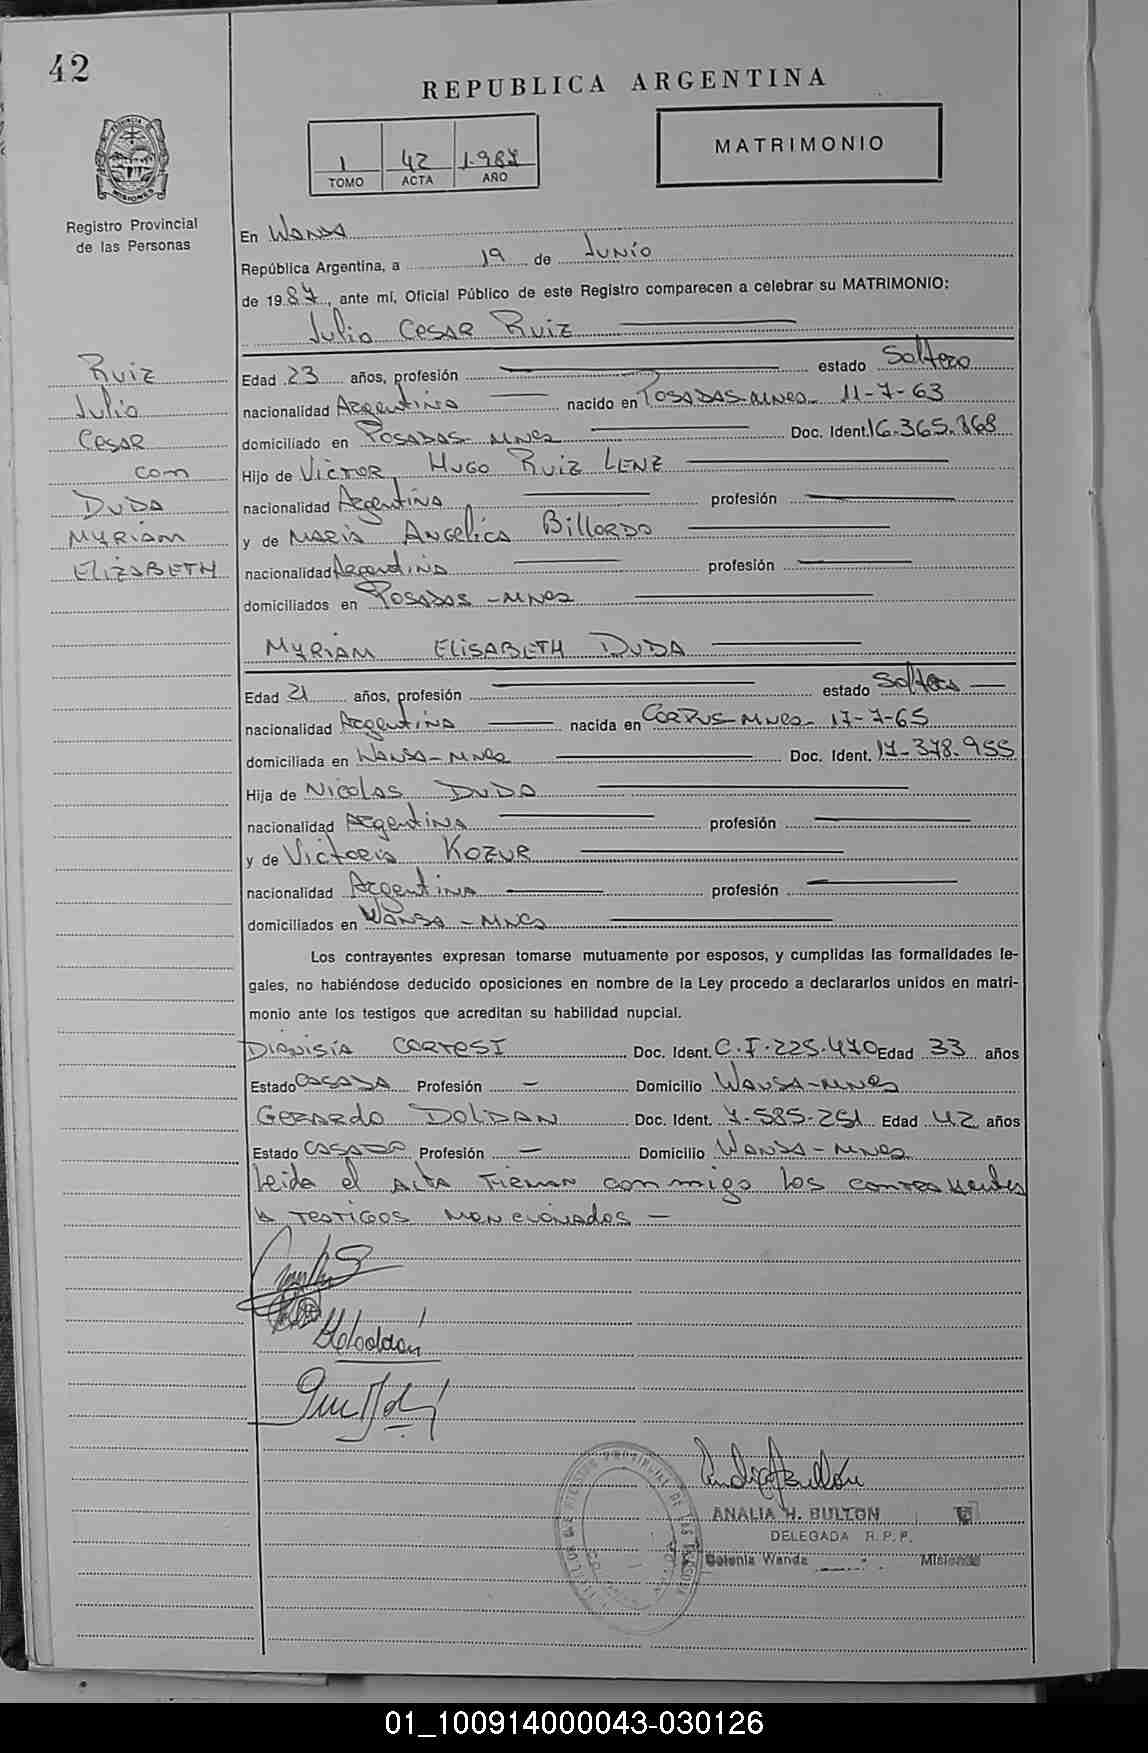 42
REPUBLICA ARGENTINA
MATRIMONIO
1 42 1.987
TOMO ACTA AÑO
Registro Provincial
de las Personas
En Wanda
República Argentina, a 19 de Junio
de 1987, ante mí, Oficial Público de este Registro comparecen a celebrar su MATRIMONIO:
Julio Cesar Ruiz
Ruiz
Julio
Cesar
com
Duda
Myriam
Elizabeth
Edad 23 años, profesión estado Soltero
nacionalidad Argentina nacido en Posadas-Mnes- 11-7-63
domiciliado en Posadas-Mnes Doc. Ident. 16.365.868
Hijo de Victor Hugo Ruiz Lenz
nacionalidad Argentina profesión
y de Maria Angelica Billordo
nacionalidad Argentina profesión
domiciliados en Posadas-Mnes
Myriam Elisabeth Duda
Edad 21 años, profesión estado Soltera
nacionalidad Argentina nacida en Corpus-Mnes- 17-7-65
domiciliada en Wanda-Mnes Doc. Ident. 17-378.955
Hija de Nicolas Duda
nacionalidad Argentina profesión
y de Victoria Kozur
nacionalidad Argentina profesión
domiciliados en Wanda-Mnes
Los contrayentes expresan tomarse mutuamente por esposos, y cumplidas las formalidades le-
gales, no habiéndose deducido oposiciones en nombre de la Ley procedo a declararlos unidos en matri-
monio ante los testigos que acreditan su habilidad nupcial.
Dionisia Cortesi Doc. Ident. C.I.225.470 Edad 33 años
Estado Casada Profesión - Domicilio Wanda-Mnes
Gerardo Doldan Doc. Ident. 7-585-251 Edad 42 años
Estado Casado Profesión - Domicilio Wanda-Mnes
Leida el Acta Firman conmigo los contrayentes
y testigos mencionados -
ANALIA H. BULTON
DELEGADA R.P.P.
Colonia Wanda Misiones
01_100914000043-030126